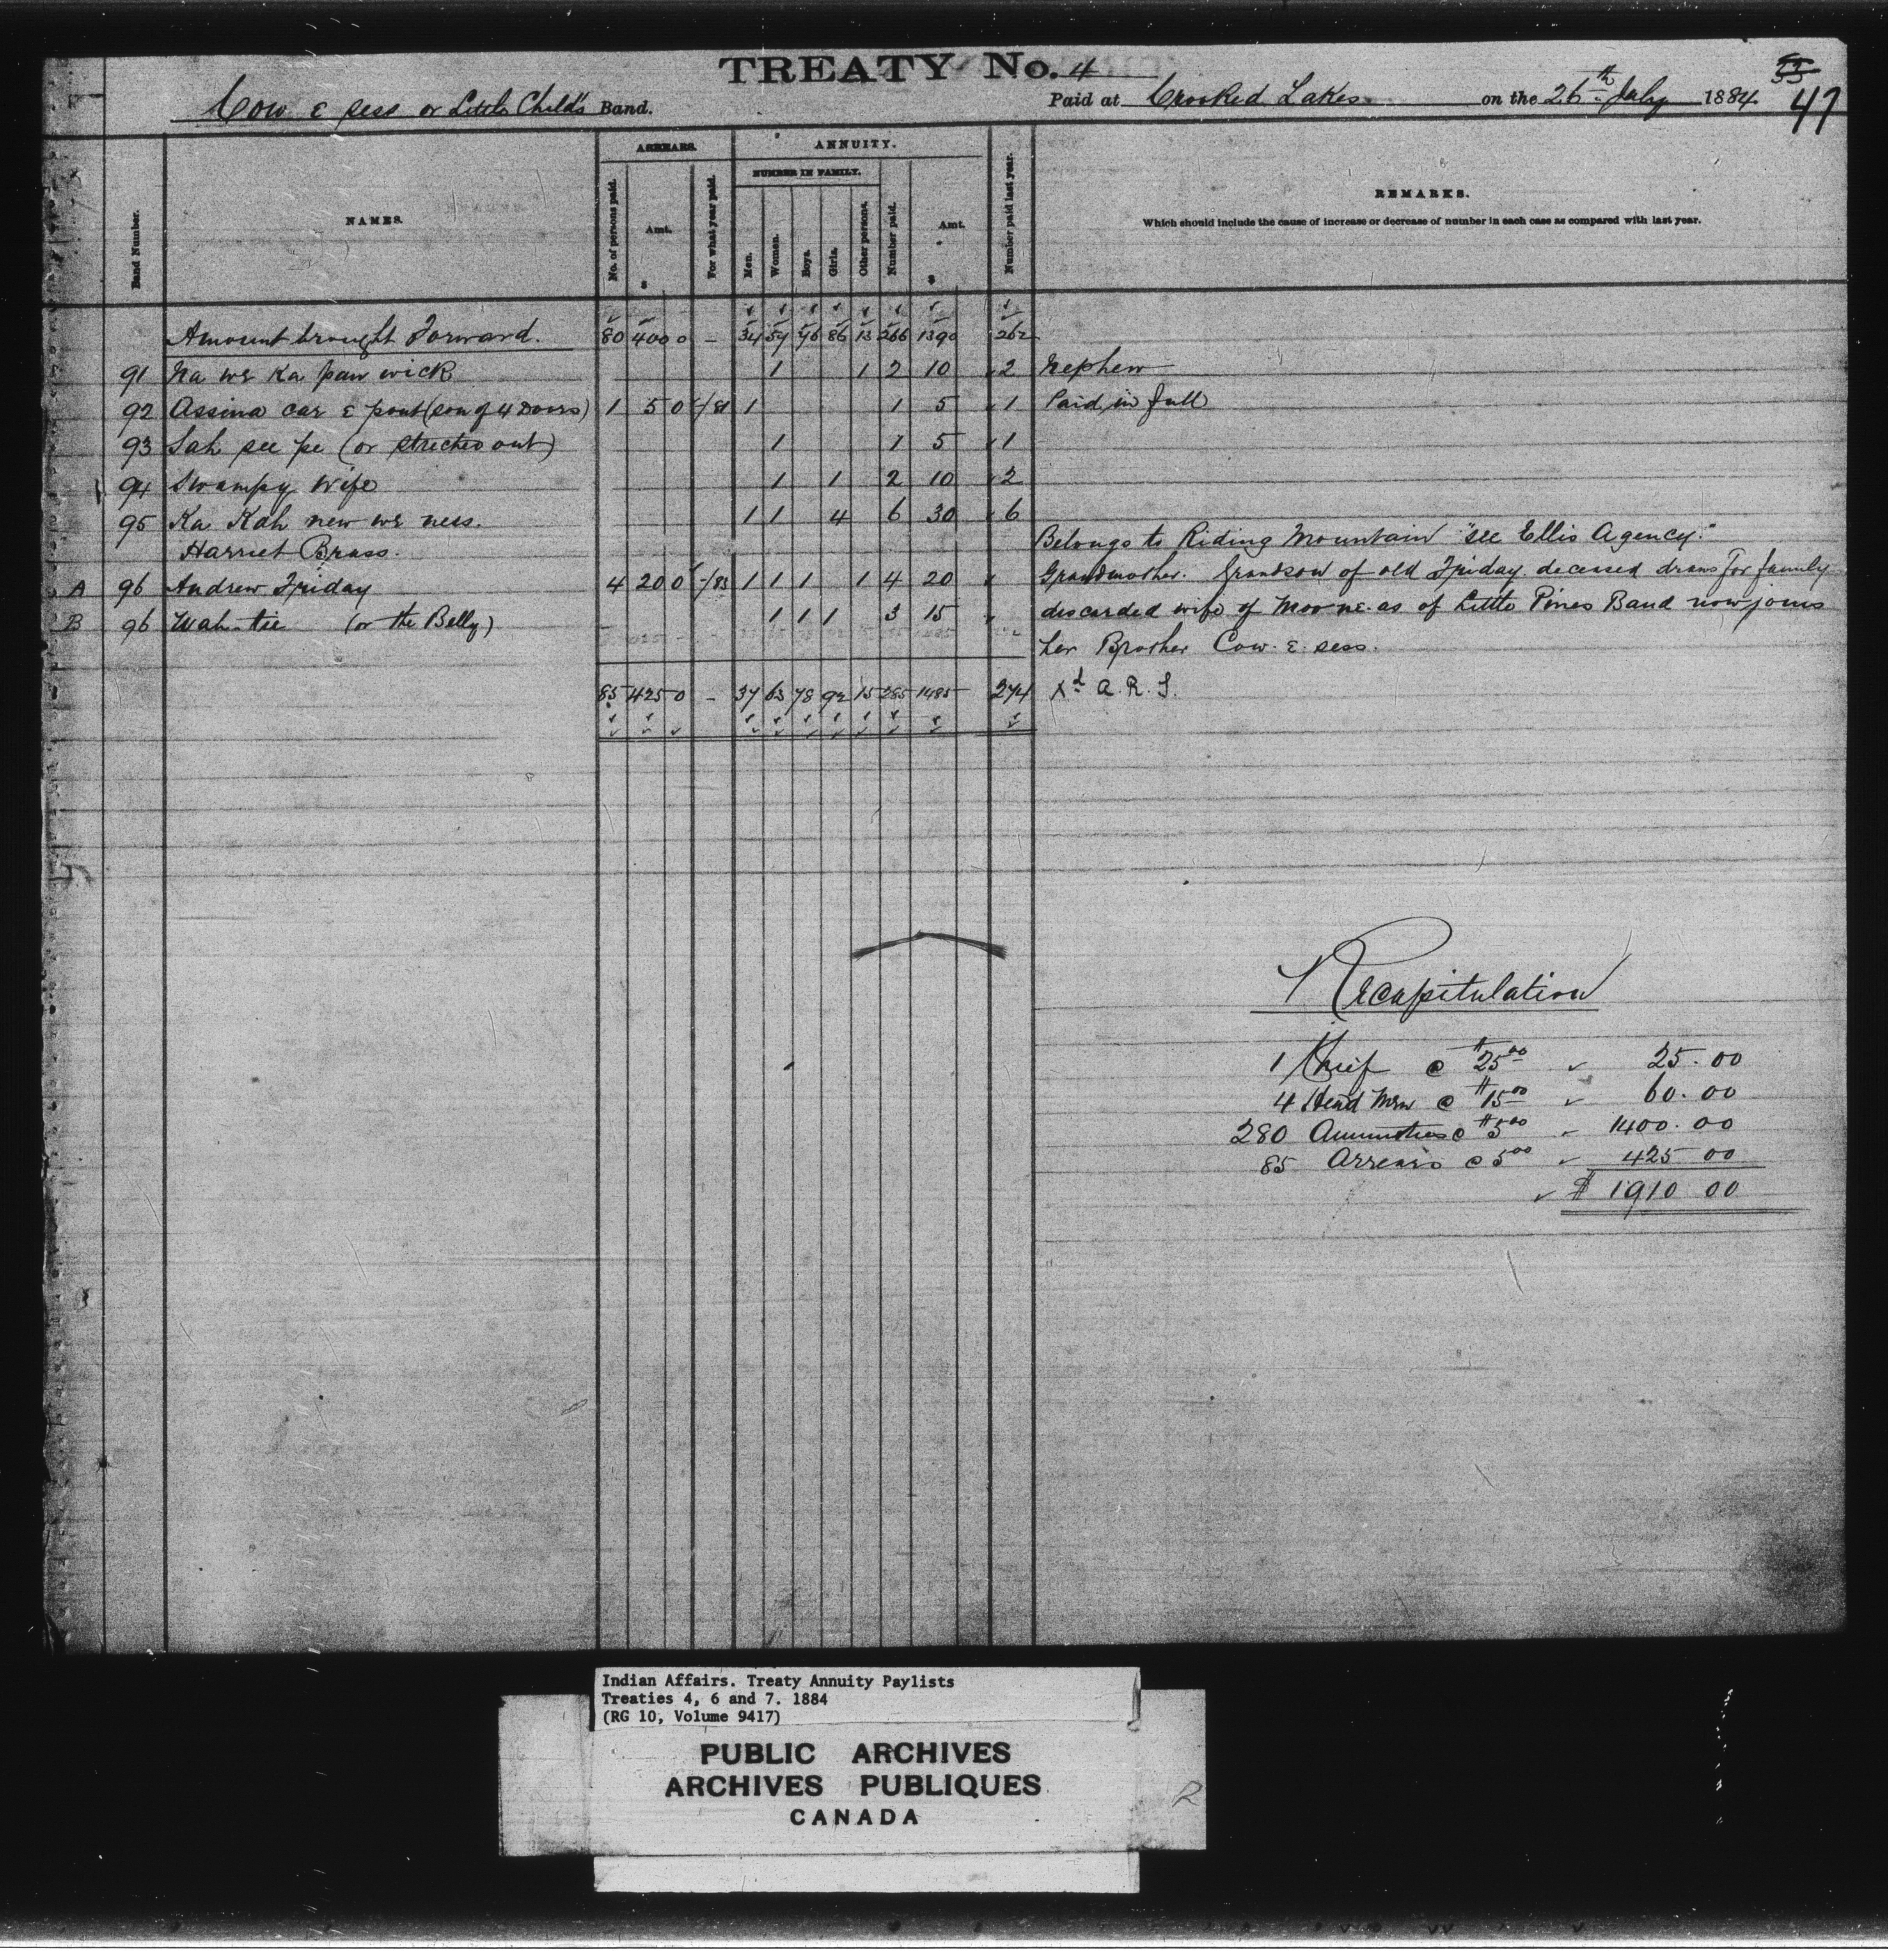 TREATY No. 4
55
47
Cow E sess or Little Child's Band.
Paid at Crooked Lakes on the 26th July 1884
Band Number.
NAMES.
ARREARS.
No. of persons paid.
Amt.
$
For what year paid.
ANNUITY.
NUMBER IN FAMILY.
Men.
Women.
Boys.
Girls.
Other persons.
Number paid.
Amt.
$
Number paid last year.
REMARKS.
Which should include the cause of increase or decrease of number in each case as compared with last year.
Amount brought Forward. 80 400 0 - 34 59 76 86 13 266 1390 262
91 Na we Ka paw wick 1 1 2 10 2 Nephew
92 Assina car E pout (son of 4 Doors) 1 5 0 /81 1 1 5 1 Paid in full
93 Sah see pe (or streched out) 1 1 5 1
94 Swampy Wife 1 1 2 10 2
95 Ka Kah new we ness. 1 1 4 6 30 6
Harriet Brass. Belongs to Riding Mountain "see Ellis Agency."
A 96 Andrew Friday 4 20 0 /83 1 1 1 1 4 20 " Grandmother. Grandson of old Friday deceased draws for family
B 96 Wah-tie (or the Belly) 1 1 1 3 15 " discarded wife of Moo ne as of Little Pines Band now joins
her Brother Cow. E. sess.
85 425 0 - 37 63 78 92 15 285 1485 274 Xd A. R. S.
Recapitulation
1 Chief @ $25.00 25.00
4 Head Men @ $15.00 60.00
280 Annuities @ $5.00 1400.00
85 Arrears @ 5.00 425 00
$ 1910 00
Indian Affairs. Treaty Annuity Paylists
Treaties 4, 6 and 7. 1884
(RG 10, Volume 9417)
PUBLIC ARCHIVES
ARCHIVES PUBLIQUES
CANADA
R